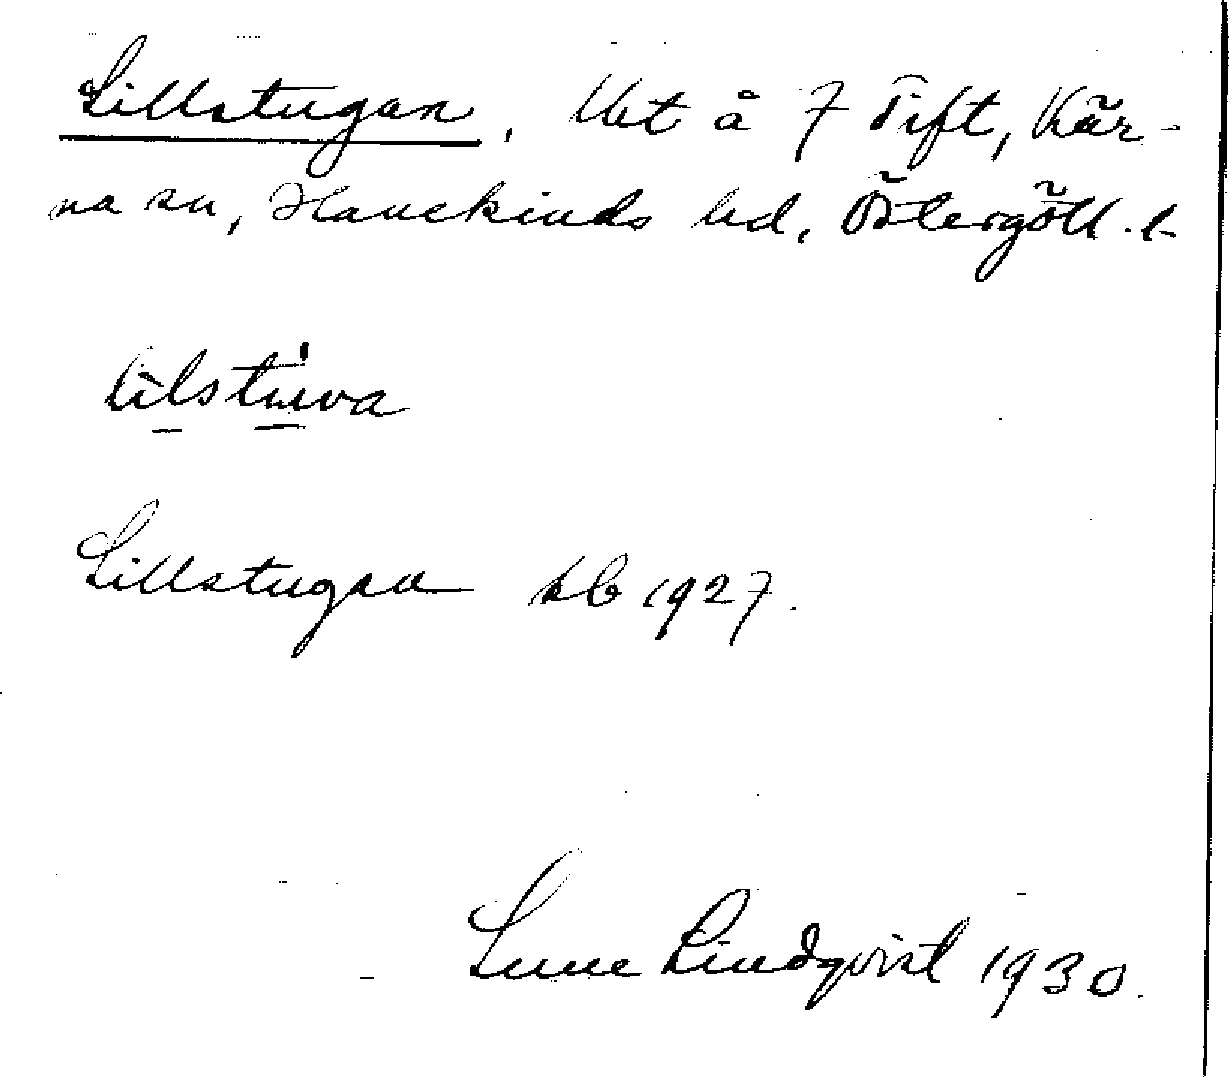 Lillstugan, Uet å 7 Tift, Kär-
na sn, Hanekinds hd, Östergötl. l.
lilstuwa
Lillstugan kb 1927.
Sune Lindqvist 1930.